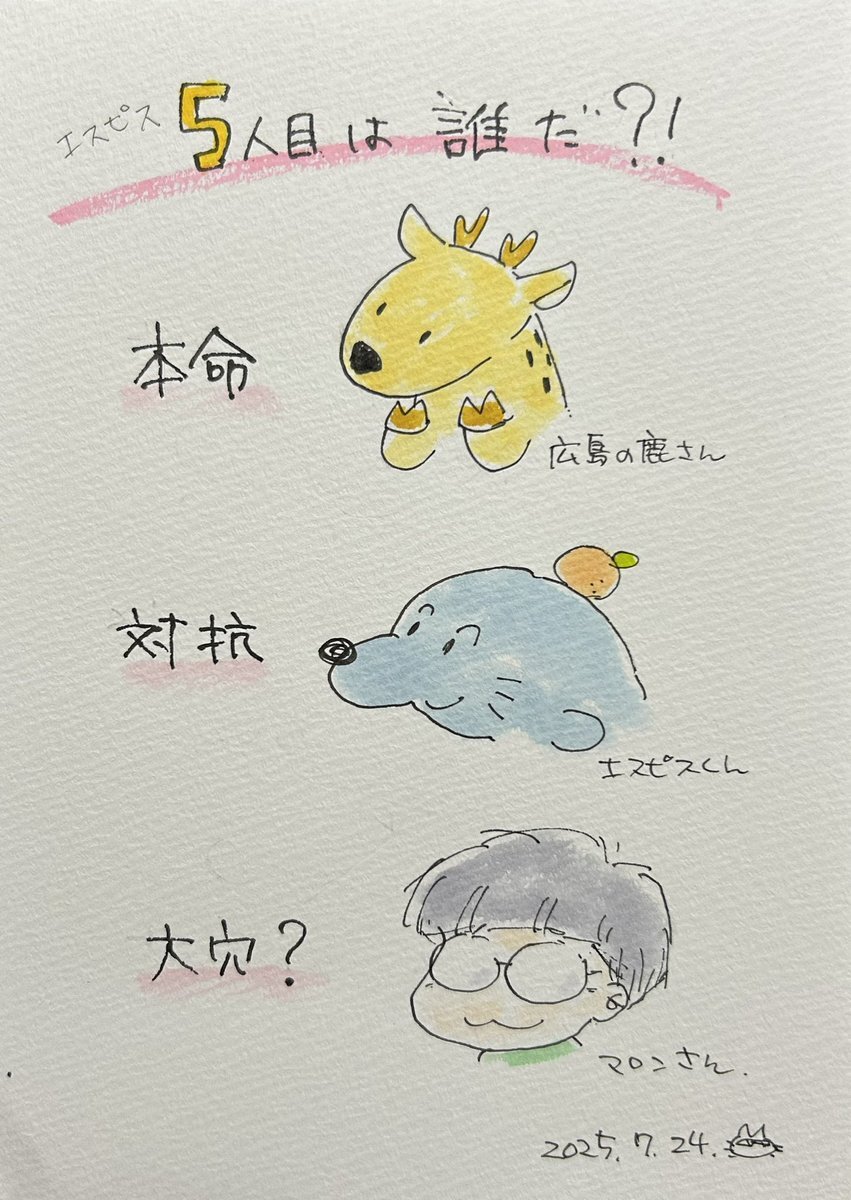 エスピス 5人目は誰だ?!
本命
広島の鹿さん
対抗
エスピスくん
大穴?
マロンさん.
2025.7.24.